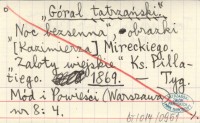 „Góral tatrzański."
„Noc bezsenna", obrazki
[Kazimierza] Mireckiego,
„Zaloty wiejskie" Ks. Pilla-
tiego. 1869. — Tyg.
Mód i Powieści (Warszawa)
nr 8: 4.